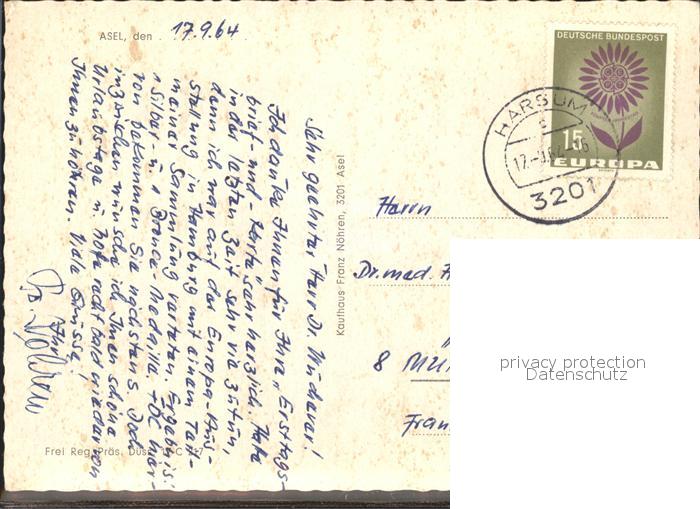 ASEL, den 17.9.64.
Sehr geehrter Herr Dr.
Ich danke Ihnen für Ihre „Ersttags-
brief- und -karte" sehr herzlich. Hatte
in der letzten Zeit sehr viel zu tun,
denn ich war auf der Europa-Aus-
stellung in Hamburg mit einem Teil
meiner Sammlung vertreten. Ergebnis:
1 Silber u. 1 Bronce-Medaille.
von bekommen Sie nächstens. Doch
inzwischen wünsche ich Ihnen schöne
Urlaubstage u. hoffe recht bald wieder von
Ihnen zu hören. Viele Grüsse!
Ihr
Kaufhaus Franz Nöhren, 3201 Asel
Frei Reg. Präs. Düss.
DEUTSCHE BUNDESPOST
15
EUROPA
HARSUM
c
3201
Herrn
Dr. med.
8 MÜ
Fran
privacy protection
Datenschutz